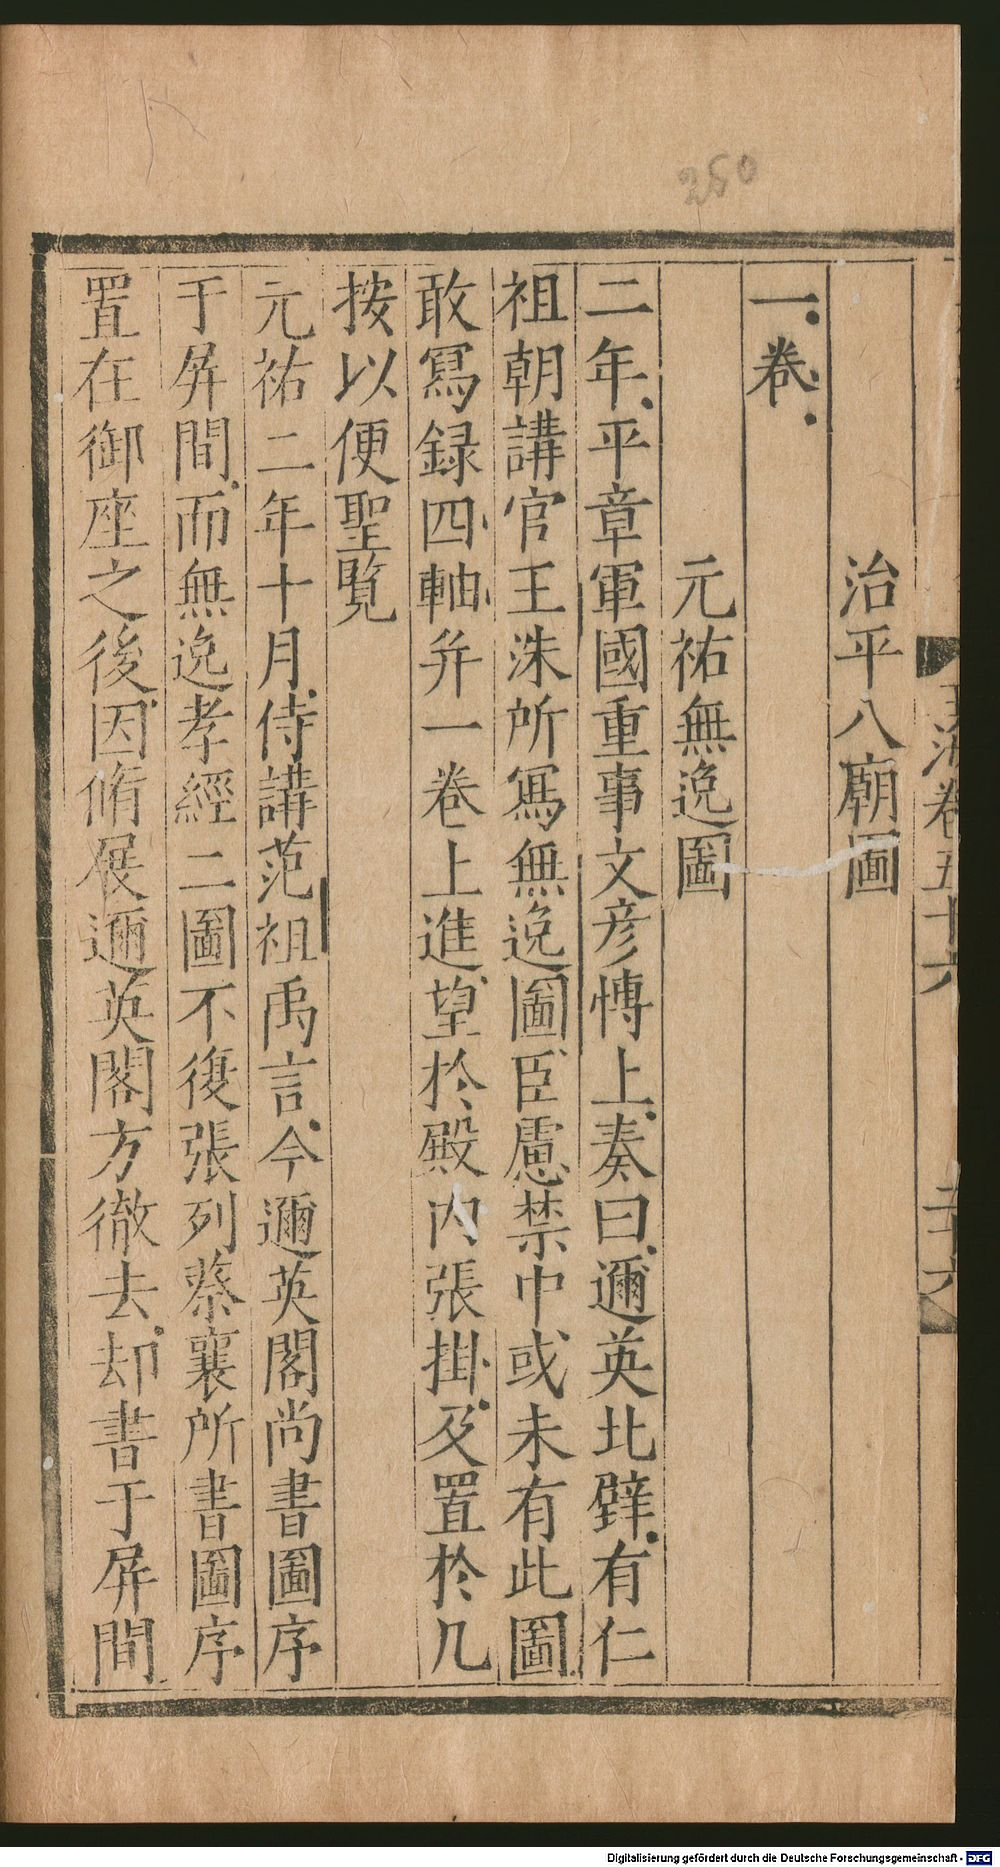 治平八廟圖
一卷
元祐無逸圖
二年平章軍國重事文彥博上奏曰邇英北壁有仁
祖朝講官王洙所寫無逸圖臣慮禁中或未有此圖
敢寫録四軸并一卷上進望於殿内張掛及置於几
按以便聖覧
元祐二年十月侍講范祖禹言今邇英閣尚書圖序
于屏間而無逸孝經二圖不復張列蔡襄所書圖序
置在御座之後因脩展邇英閣方徹去却書于屏間
玉海卷五十六
二十六
280
Digitalisierung gefördert durch die Deutsche Forschungsgemeinschaft - DFG